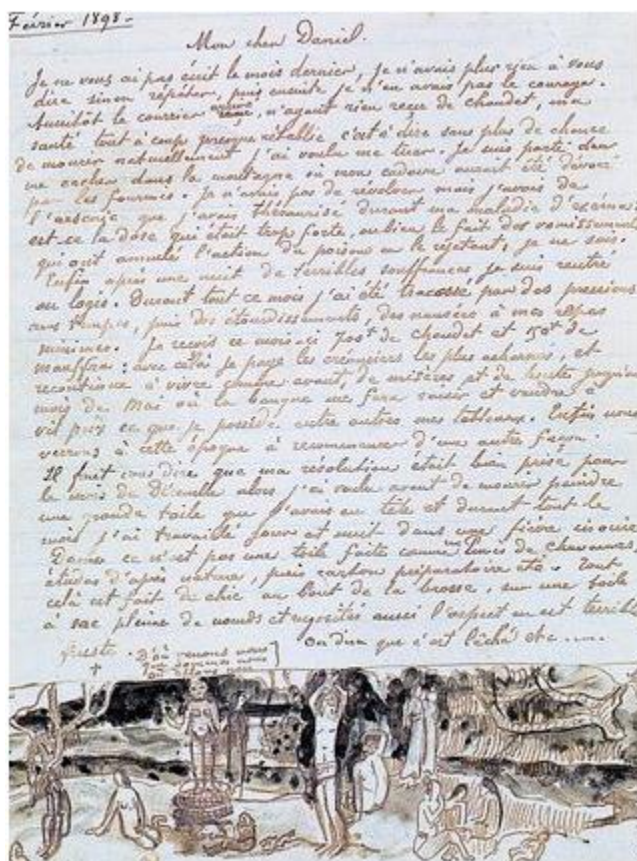 Février 1898 -
Mon cher Daniel.
Je ne vous ai pas écrit le mois dernier, je n'avais plus rien à vous
dire sinon répéter, puis ensuite je n'en avais pas le courage.
Aussitôt le courrier arrivé, n'ayant rien reçu de Chaudet, ma
santé tout à coup presque rétablie c'est à dire sans plus de chance
de mourir naturellement j'ai voulu me tuer. Je suis parti dans
me cacher dans la montagne où mon cadavre aurait été dévoré
par les fourmis. Je n'avais pas de révolver mais j'avais de
l'arsenic que j'avais thésaurisé durant ma maladie d'eczéma:
est-ce la dose qui était trop forte, ou bien le fait des vomissements
qui ont annulé l'action du poison en le rejetant; je ne sais.
Enfin après une nuit de terribles souffrances je suis rentré
au logis. Durant tout ce mois j'ai été tracassé par des pressions
aux tempes, puis des étourdissements, des nausées à mes repas
minimes. Je reçois ce mois-ci 700f de Chaudet et 150f de
Mauffra: avec cela je paye les créanciers les plus acharnés, et
recontinue à vivre comme avant, de misères et de honte jusqu'au
mois de Mai où la banque me fera saisir et vendre à
vil prix ce que je possède entre autres mes tableaux. Enfin nous
verrons à cette époque à recommencer d'une autre façon.
Il faut vous dire que ma résolution était bien prise pour
le mois de Décembre alors j'ai voulu avant de mourir peindre
une grande toile que j'avais en tête et durant tout le
mois j'ai travaillé jour et nuit dans une fièvre inouïe
Dame ce n'est pas une toile faite comme un Puvis de Chavannes
études d'après nature, puis carton préparatoire etc. Tout
celà est fait de chic au bout de la brosse, sur une toile
à sac pleine de nœuds et rugosités aussi l'aspect en est terrible
On dira que c'est lâché etc
D'où venons nous